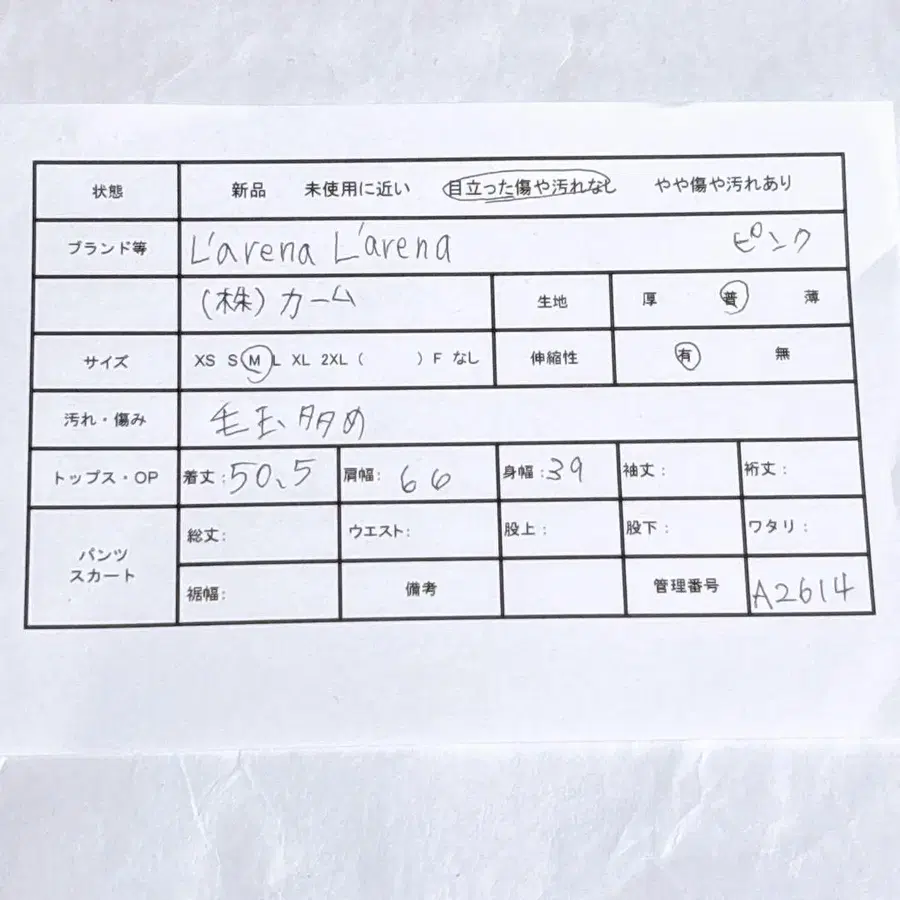 状態 新品 未使用に近い 目立った傷や汚れなし やや傷や汚れあり
ブランド等 L'arena L'arena ピンク
(株)カーム 生地 厚 普 薄
サイズ XS S M L XL 2XL ( ) F なし 伸縮性 有 無
汚れ・傷み 毛玉多め
トップス・OP 着丈:50.5 肩幅:66 身幅:39 袖丈: 裄丈:
パンツ スカート 総丈: ウエスト: 股上: 股下: ワタリ:
裾幅: 備考 管理番号 A2614